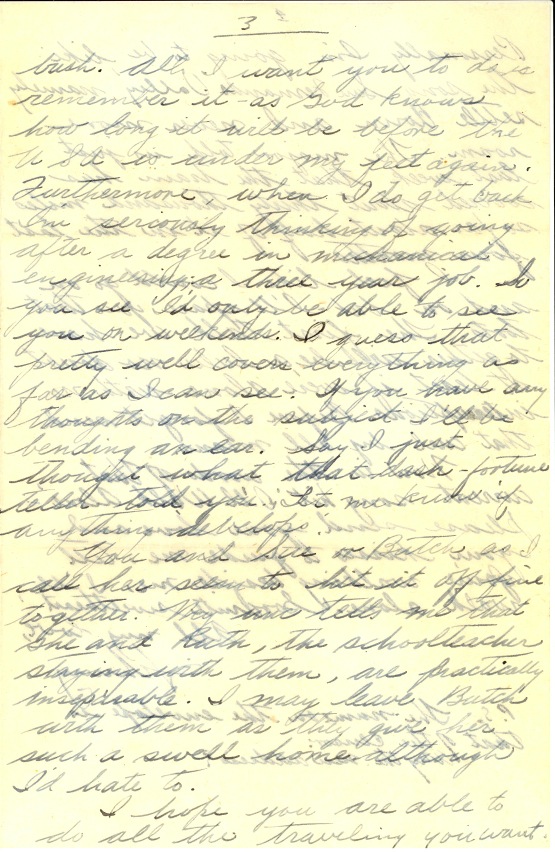 3
bush. All I want you to do is
remember it - as God knows
how long it will be before the
U S A is under my feet again.
Furthermore, when I do get back
I'm seriously thinking of going
after a degree in mechanical
engineering; a three year job. So
you see I'd only be able to see
you on weekends. I guess that
pretty well covers everything as
far as I can see. If you have any
thoughts on the subject I'll be
bending an ear. Say, I just
thought what that fortune
teller told you. Let me know if
anything develops.
You and Sue or Butch, as I
call her seem to hit it off fine
together. My tells me that
she and Ruth, the schoolteacher
staying with them, are practically
I may leave Butch
with them as they give her
such a swell home although
I'd hate to.
I hope you are able to
do all the traveling you want.